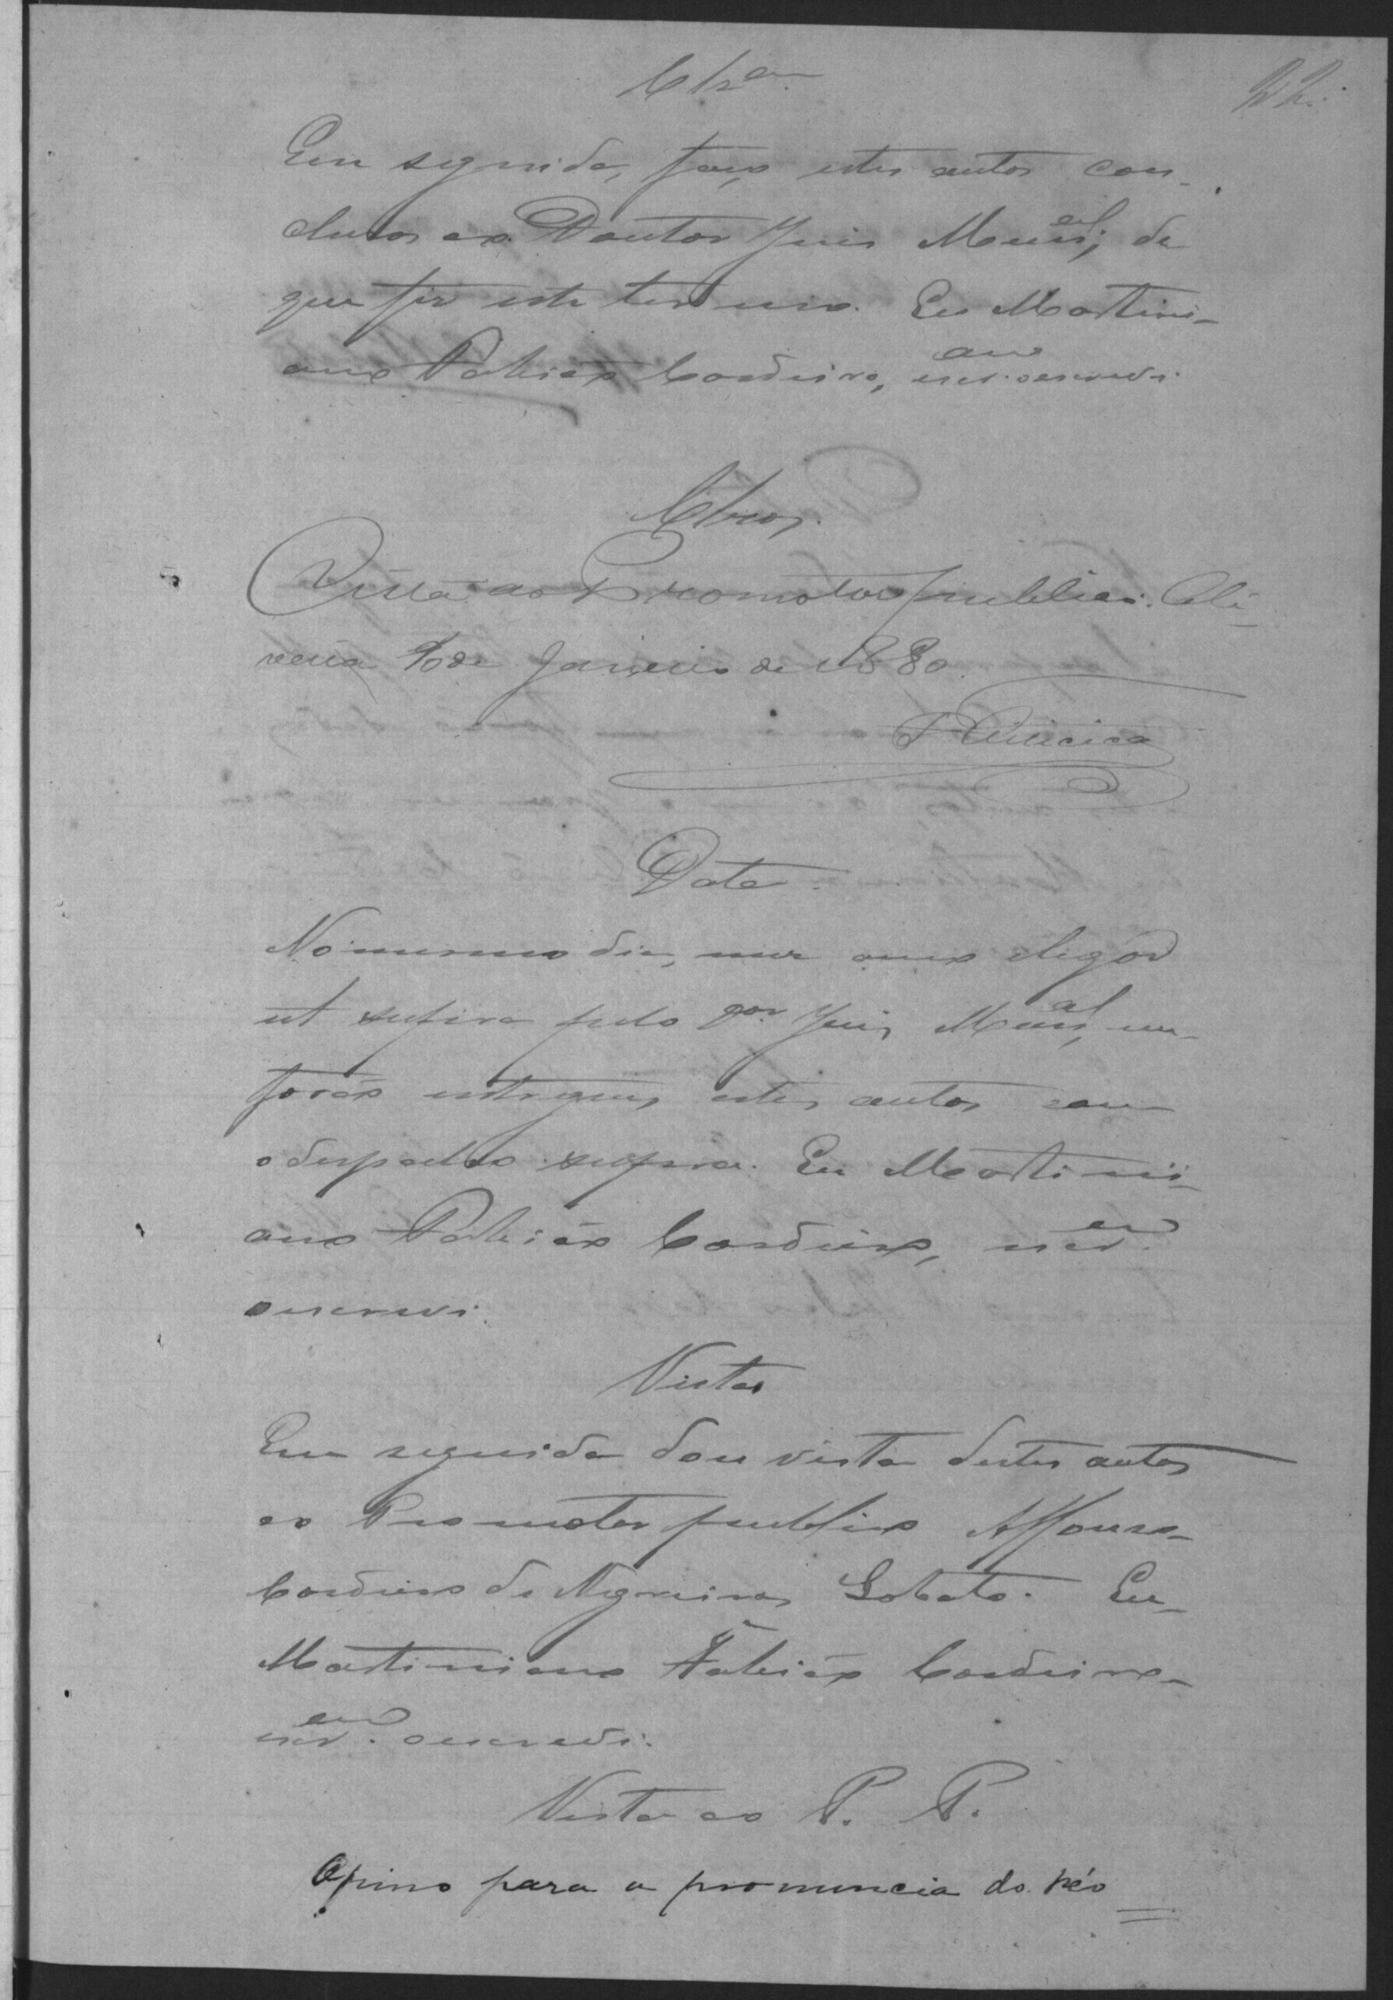 Clzam
22.
Em seguida, faço estes autos con-
clusos ao Doutor Juis Munal, de
que fiz este termo. Eu Martini-
ano Fabião Cordeiro, escram o escrevi.
Clusos.
Vista ao Promotor publico. Oli-
veira de Janeiro de 1880.
Data.
No mesmo dia, mez anno e lugar
ut supra pelo Dor Juis Munal, me
forão entregues estes autos com
o despacho supra. Eu Martini-
ano Fabião Cordeiro, escram
o escrevi.
Vista
Em seguida dou vista destes autos
ao Promotor publico Affonso
Cordeiro de Negreiros Lobato. Eu
Martiniano Fabião Cordeiro
escram o escrevi.
Vista ao P. P.
Opino para a pronuncia do réo